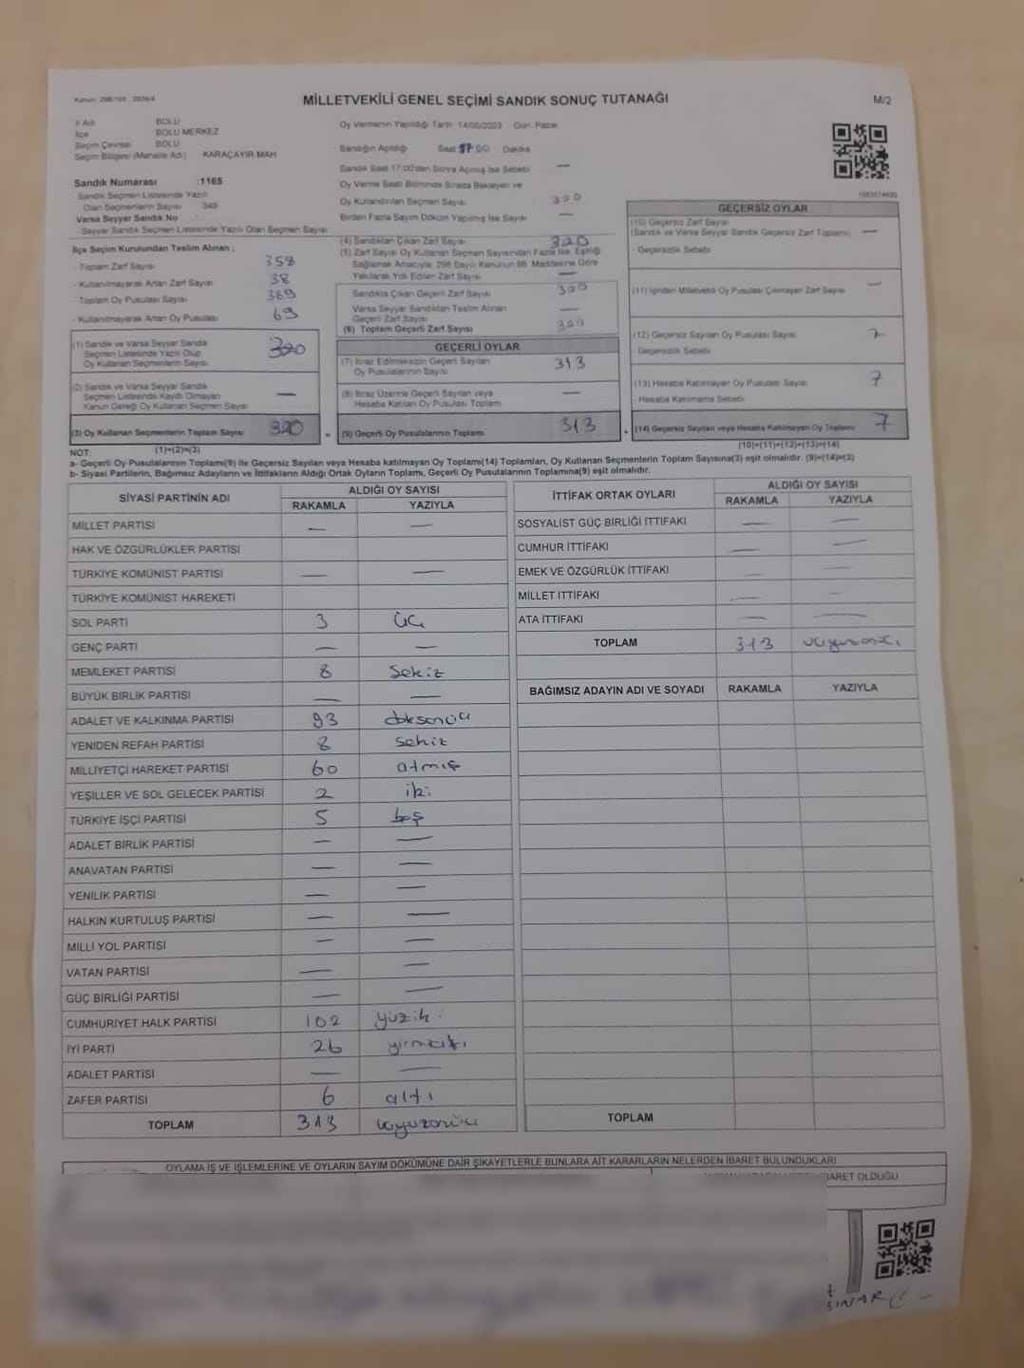 MİLLETVEKİLİ GENEL SEÇİMİ SANDIK SONUÇ TUTANAĞI
M/2
İl Adı BOLU
İlçe BOLU MERKEZ
Seçim Çevresi BOLU
Seçim Bölgesi (Mahalle Adı) KARAÇAYIR MAH
Sandık Numarası :1165
Sandık Seçmen Listesinde Yazılı
Olan Seçmenlerin Sayısı 349
Varsa Seyyar Sandık No
Seyyar Sandık Seçmen Listesinde Yazılı Olan Seçmen Sayısı
Oy Vermenin Yapıldığı Tarih 14/05/2023 Gün Pazar
Sandığın Açıldığı Saat 17 00 Dakika
Sandık Saat 17:00'den Sonra Açılmış İse Sebebi —
Oy Verme Saati Bitiminde Sırada Bekleyen ve
Oy Kullandırılan Seçmen Sayısı
Birden Fazla Sayım Döküm Yapılmış İse Sayısı —
İlçe Seçim Kurulundan Teslim Alınan ;
- Toplam Zarf Sayısı 358
- Kullanılmayarak Artan Zarf Sayısı 38
- Toplam Oy Pusulası Sayısı 389
- Kullanılmayarak Artan Oy Pusulası 69
(1) Sandık ve Varsa Seyyar Sandık
Seçmen Listesinde Yazılı Olup
Oy Kullanan Seçmenlerin Sayısı 320
(2) Sandık ve Varsa Seyyar Sandık
Seçmen Listesinde Kayıtlı Olmayan
Kanun Gereği Oy Kullanan Seçmen Sayısı —
(3) Oy Kullanan Seçmenlerin Toplam Sayısı 320
(1)+(2)=(3)
(4) Sandıktan Çıkan Zarf Sayısı 320
(5) Zarf Sayısı Oy Kullanan Seçmen Sayısından Fazla İse, Eşitliği
Sağlamak Amacıyla, 298 Sayılı Kanunun 98. Maddesine Göre
Yakılarak Yok Edilen Zarf Sayısı —
Sandıkta Çıkan Geçerli Zarf Sayısı 320
Varsa Seyyar Sandıktan Teslim Alınan
Geçerli Zarf Sayısı —
(6) Toplam Geçerli Zarf Sayısı 320
GEÇERLİ OYLAR
(7) İtiraz Edilmeksizin Geçerli Sayılan
Oy Pusulalarının Sayısı 313
(8) İtiraz Üzerine Geçerli Sayılan veya
Hesaba Katılan Oy Pusulası Toplam —
(9) Geçerli Oy Pusulalarının Toplamı 313
GEÇERSİZ OYLAR
(10) Geçersiz Zarf Sayısı
(Sandık ve Varsa Seyyar Sandık Geçersiz Zarf Toplamı) —
- Geçersizlik Sebebi
(11) İçinden Milletvekili Oy Pusulası Çıkmayan Zarf Sayısı —
(12) Geçersiz Sayılan Oy Pusulası Sayısı 7
- Geçersizlik Sebebi
(13) Hesaba Katılmayan Oy Pusulası Sayısı 7
- Hesaba Katılmama Sebebi
(14) Geçersiz Sayılan veya Hesaba Katılmayan Oy Toplamı 7
(10)+(11)+(12)+(13)=(14)
NOT:
a- Geçerli Oy Pusulalarının Toplamı(9) ile Geçersiz Sayılan veya Hesaba katılmayan Oy Toplamı(14) Toplamları, Oy Kullanan Seçmenlerin Toplam Sayısına(3) eşit olmalıdır. (9)+(14)=(3)
b- Siyasi Partilerin, Bağımsız Adayların ve İttifakların Aldığı Ortak Oyların Toplamı, Geçerli Oy Pusulalarının Toplamına(9) eşit olmalıdır.
SİYASİ PARTİNİN ADI ALDIĞI OY SAYISI
RAKAMLA YAZIYLA
MİLLET PARTİSİ — —
HAK VE ÖZGÜRLÜKLER PARTİSİ
TÜRKİYE KOMÜNİST PARTİSİ — —
TÜRKİYE KOMÜNİST HAREKETİ
SOL PARTİ 3 üç
GENÇ PARTİ — —
MEMLEKET PARTİSİ 8 Sekiz
BÜYÜK BİRLİK PARTİSİ — —
ADALET VE KALKINMA PARTİSİ 93 doksanüç
YENİDEN REFAH PARTİSİ 8 sekiz
MİLLİYETÇİ HAREKET PARTİSİ 60 atmış
YEŞİLLER VE SOL GELECEK PARTİSİ 2 iki
TÜRKİYE İŞÇİ PARTİSİ 5 beş
ADALET BİRLİK PARTİSİ — —
ANAVATAN PARTİSİ — —
YENİLİK PARTİSİ — —
HALKIN KURTULUŞ PARTİSİ — —
MİLLİ YOL PARTİSİ — —
VATAN PARTİSİ — —
GÜÇ BİRLİĞİ PARTİSİ — —
CUMHURİYET HALK PARTİSİ 102 yüziki
İYİ PARTİ 26
ADALET PARTİSİ — —
ZAFER PARTİSİ 6 altı
TOPLAM 313 üçyüzonüç
İTTİFAK ORTAK OYLARI ALDIĞI OY SAYISI
RAKAMLA YAZIYLA
SOSYALİST GÜÇ BİRLİĞİ İTTİFAKI — —
CUMHUR İTTİFAKI — —
EMEK VE ÖZGÜRLÜK İTTİFAKI — —
MİLLET İTTİFAKI — —
ATA İTTİFAKI — —
TOPLAM 313 üçyüzonüç
BAĞIMSIZ ADAYIN ADI VE SOYADI RAKAMLA YAZIYLA
TOPLAM
OYLAMA İŞ VE İŞLEMLERİNE VE OYLARIN SAYIM DÖKÜMÜNE DAİR ŞİKAYETLERLE BUNLARA AİT KARARLARIN NELERDEN İBARET BULUNDUKLARI
İBARET OLDUĞU